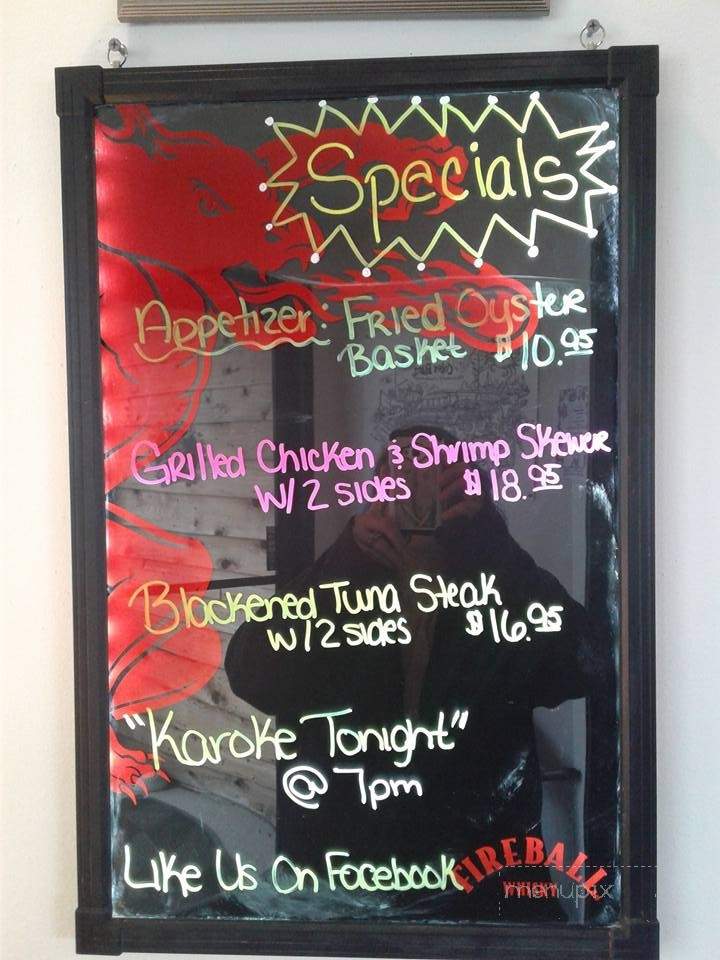 Specials
Appetizer: Fried Oyster
Basket $10.95
Grilled Chicken & Shrimp Skewer
W/ 2 sides $18.95
Blackened Tuna Steak
w/ 2 sides $16.95
"Karoke Tonight"
@ 7pm
Like Us On Facebook
FIREBALL
menupix